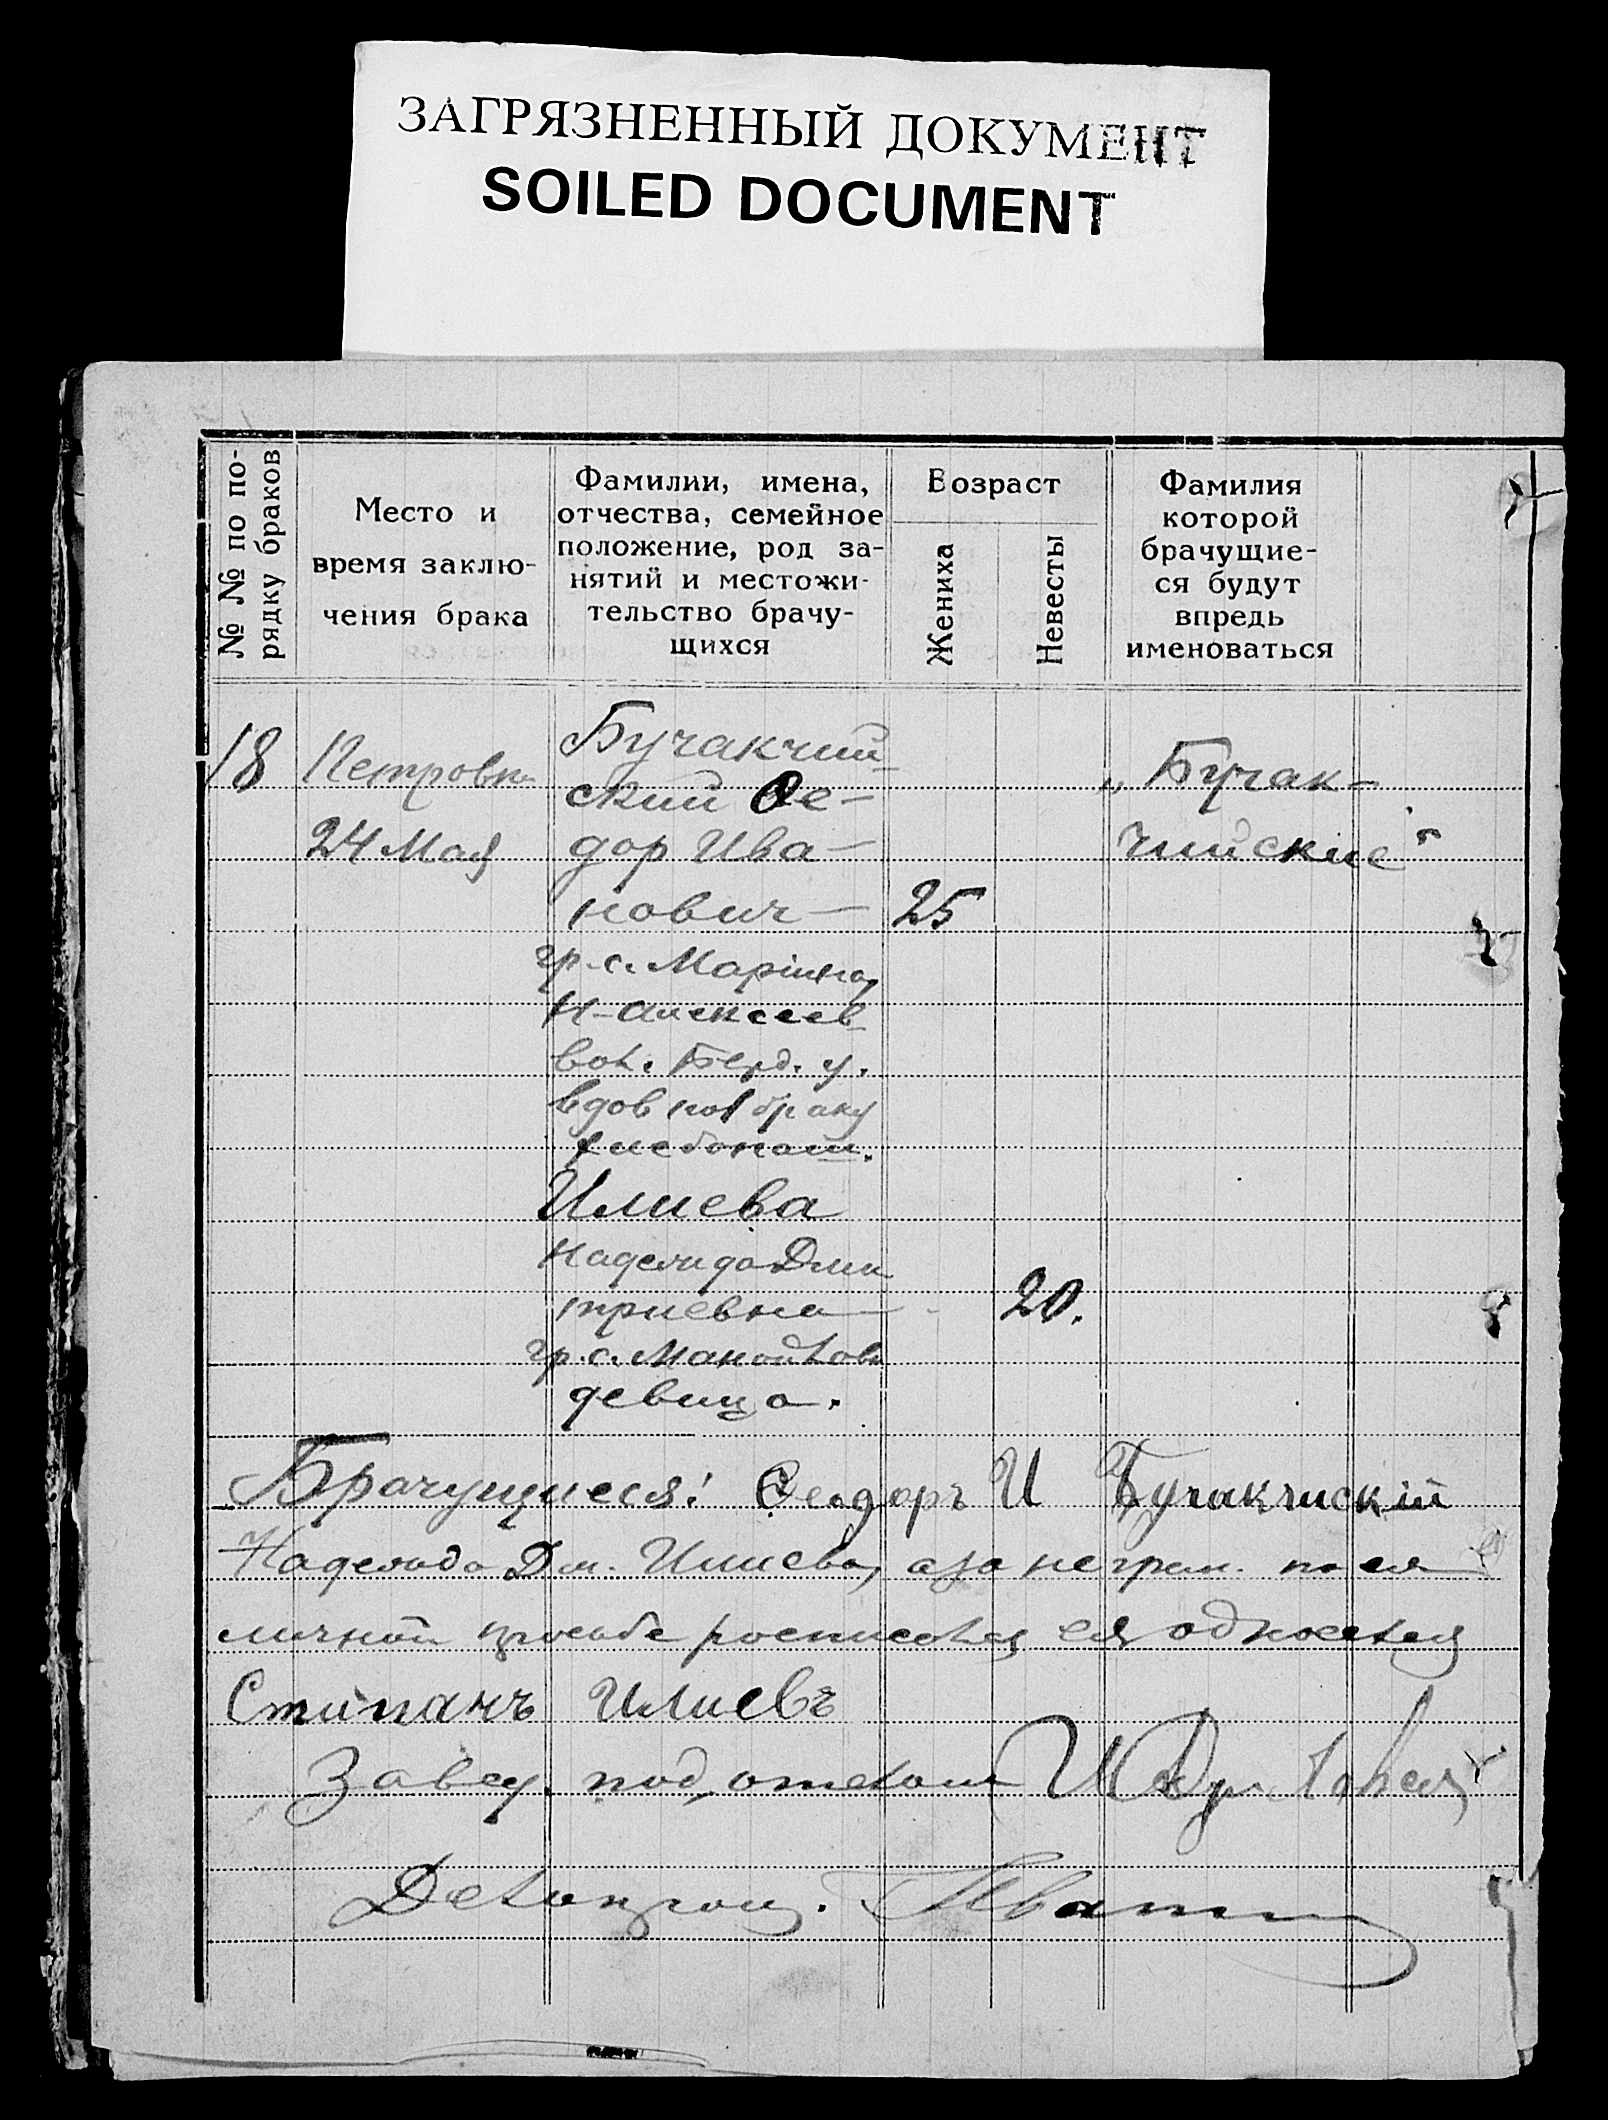 ЗАГРЯЗНЕННЫЙ ДОКУМЕНТ
SOILED DOCUMENT
№ № по по-
рядку браков
Место и
время заклю-
чения брака
Фамилии, имена,
отчества, семейное
положение, род за-
нятий и местожи-
тельство брачу-
щихся
Возраст
Жениха
Невесты
Фамилия
которой
брачущие-
ся будут
впредь
именоваться
18
Петровка
24 Мая
Бучакчий-
ский Фе-
дор Ива-
нович
25
гр. с. Марiино,
Н-Алексеев
вол. Берд. у.
вдов по I браку
хлебопаш.
Илиева
Надежда Дми
триевна
20.
гр. с. Манойлов
девица.
„Бучак-
чийские"
Брачущиеся: Феодоръ И Бучакчискiй
Надежда Дм. Илиева, а за неграм. по ея
личной просьбе росписался ея односел
Стипанъ Илиевъ
Завед. под, отделом
Делопроиз.